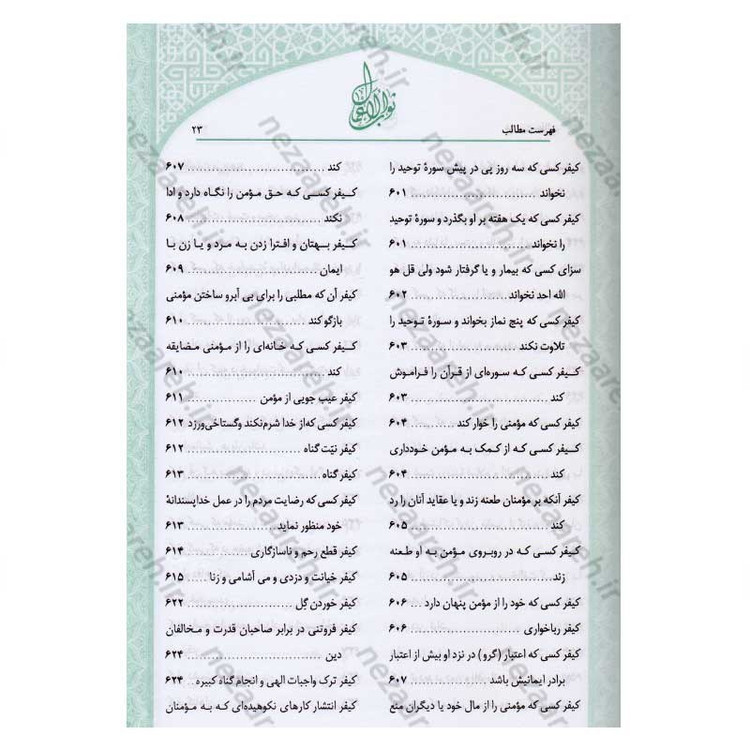 ثواب الاعمال
فهرست مطالب
۲۳
کیفر کسی که سه روز پی در پیش سورهٔ توحید را
نخواند ........ ۶۰۱
کیفر کسی که یک هفته بر او بگذرد و سورهٔ توحید
را نخواند ........ ۶۰۱
سزای کسی که بیمار و یا گرفتار شود ولی قل هو
الله احد نخواند ........ ۶۰۲
کیفر کسی که پنج نماز بخواند و سورهٔ توحید را
تلاوت نکند ........ ۶۰۳
کیفر کسی که سوره‌ای از قرآن را فراموش
کند ........ ۶۰۳
کیفر کسی که مؤمنی را خوار کند ........ ۶۰۴
کیفر کسی که از کمک به مؤمن خودداری
کند ........ ۶۰۴
کیفر آنکه بر مؤمنان طعنه زند و یا عقاید آنان را رد
کند ........ ۶۰۵
کیفر کسی که در روبروی مؤمن به او طعنه
زند ........ ۶۰۵
کیفر کسی که خود را از مؤمن پنهان دارد ... ۶۰۶
کیفر رباخواری ........ ۶۰۶
کیفر کسی که اعتبار (گرو) در نزد او بیش از اعتبار
برادر ایمانیش باشد ........ ۶۰۷
کیفر کسی که مؤمنی را از مال خود یا دیگران منع
کند ........ ۶۰۷
کیفر کسی که حق مؤمن را نگاه دارد و ادا
نکند ........ ۶۰۸
کیفر بهتان و افترا زدن به مرد و یا زن با
ایمان ........ ۶۰۹
کیفر آن که مطلبی را برای بی آبرو ساختن مؤمنی
بازگو کند ........ ۶۱۰
کیفر کسی که خانه‌ای را از مؤمنی مضایقه
کند ........ ۶۱۰
کیفر عیب جویی از مؤمن ........ ۶۱۱
کیفر کسی که‌از خدا شرم‌نکند وگستاخی‌ورزد ۶۱۲
کیفر نیّت گناه ........ ۶۱۲
کیفر گناه ........ ۶۱۳
کیفر کسی که رضایت مردم را در عمل خداپسندانهٔ
خود منظور نماید ........ ۶۱۳
کیفر قطع رحم و ناسازگاری ........ ۶۱۴
کیفر خیانت و دزدی و می آشامی و زنا ... ۶۱۵
کیفر خوردن گِل ........ ۶۲۲
کیفر فروتنی در برابر صاحبان قدرت و مخالفان
دین ........ ۶۲۴
کیفر ترک واجبات الهی و انجام گناه کبیره... ۶۲۴
کیفر انتشار کارهای نکوهیده‌ای که به مؤمنان
nezaareh.ir